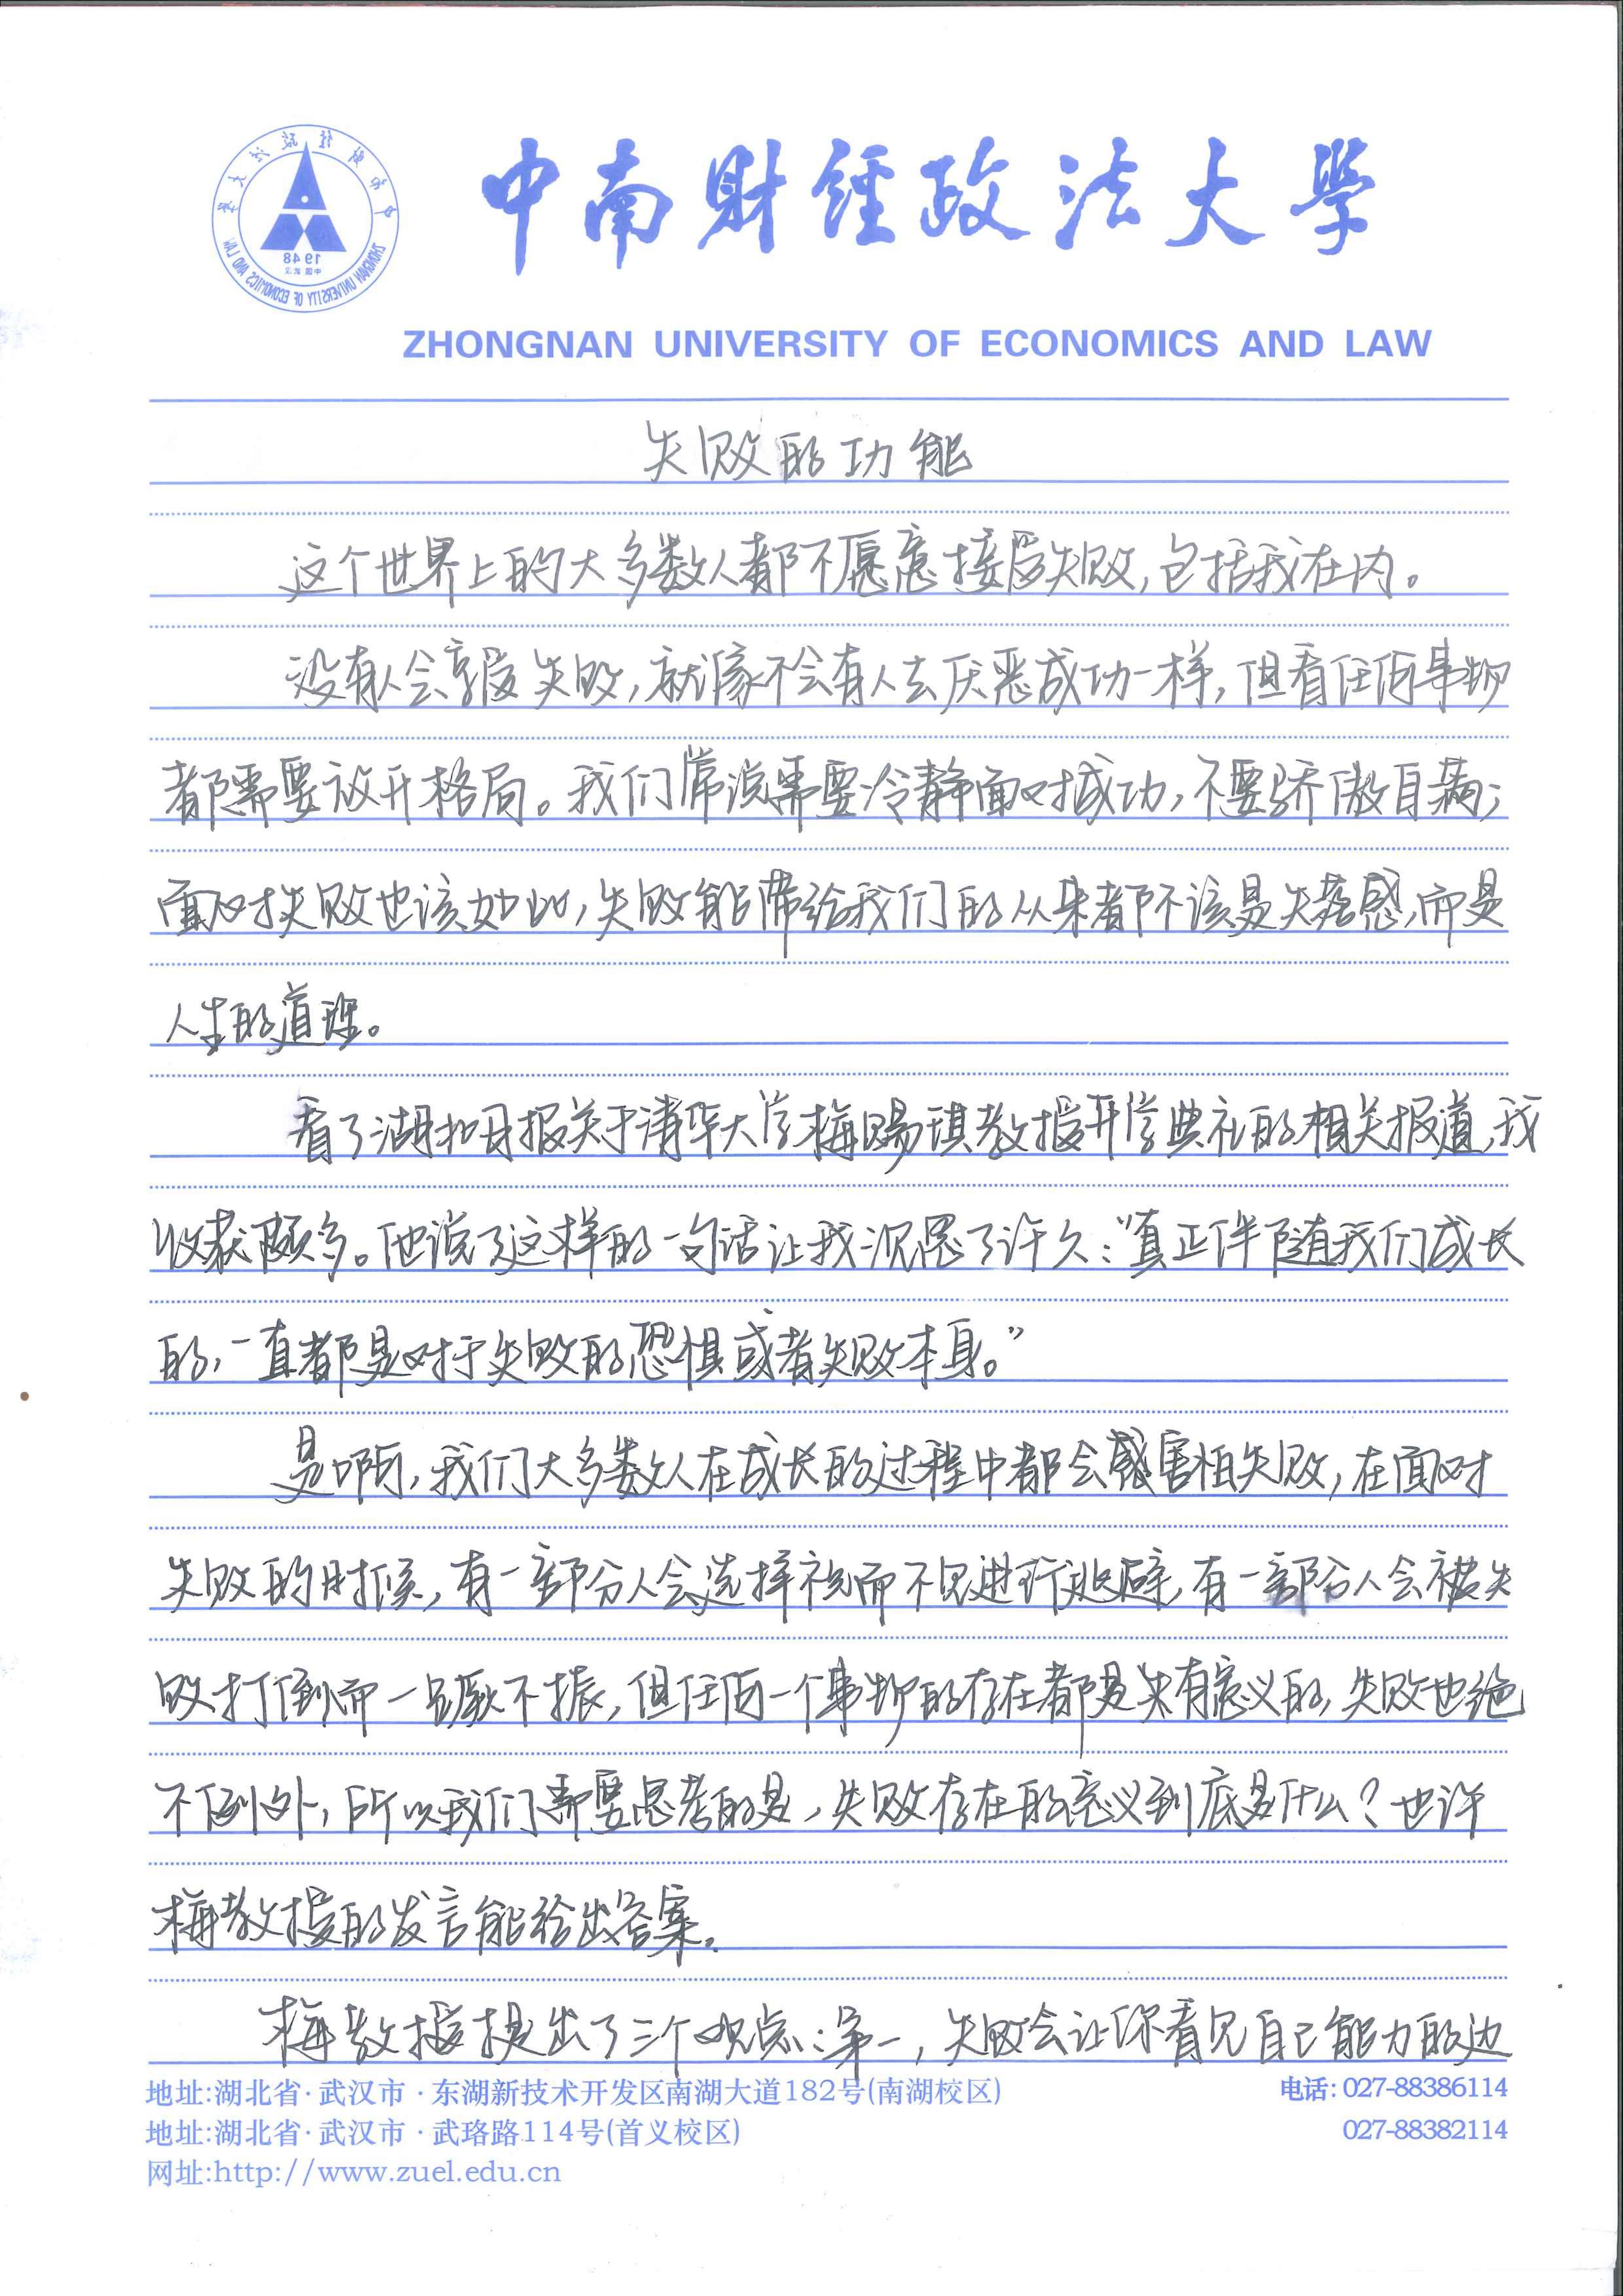 中南财经政法大学
1948
ZHONGNAN UNIVERSITY OF ECONOMICS AND LAW
ZHONGNAN UNIVERSITY OF ECONOMICS AND LAW
失败的功能
这个世界上的大多数人都不愿意接受失败,包括我在内。
没有人会享受失败,就像不会有人去厌恶成功一样,但看任何事物
都需要放开格局。我们常说需要冷静面对成功,不要骄傲自满;
面对失败也该如此,失败能带给我们的从来都不该是失落感,而是
人生的道理。
看了湖北日报关于清华大学梅赐琪教授开学典礼的相关报道,我
收获颇多。他说了这样的一句话让我沉思了许久:“真正伴随我们成长
的,一直都是对于失败的恐惧或者失败本身。”
是啊,我们大多数人在成长的过程中都会感害怕失败,在面对
失败的时候,有一部分人会选择视而不见进行逃避,有一部分人会被失
败打倒而一蹶不振,但任何一个事物的存在都是有意义的,失败也绝
不例外,所以我们需要思考的是,失败存在的意义到底是什么?也许
梅教授的发言能给出答案。
梅教授提出了三个观点:第一,失败会让你看见自己能力的边
地址:湖北省·武汉市·东湖新技术开发区南湖大道182号(南湖校区)
电话:027-88386114
地址:湖北省·武汉市·武珞路114号(首义校区)
027-88382114
网址:http://www.zuel.edu.cn